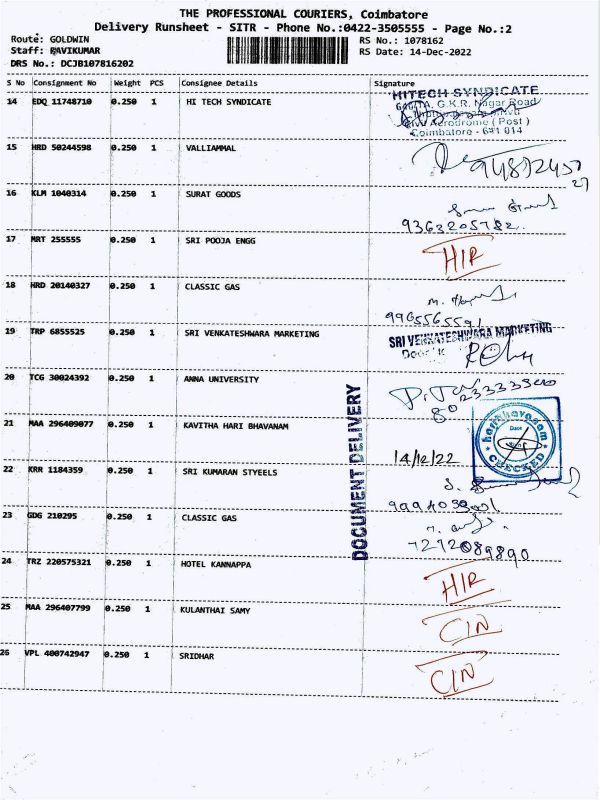 THE PROFESSIONAL COURIERS, Coimbatore
Delivery Runsheet - SITR - Phone No.:0422-3505555 - Page No.:2
Route: GOLDWIN RS No.: 1078162
Staff: RAVIKUMAR RS Date: 14-Dec-2022
DRS No.: DCJB107816202
S No Consignment No Weight PCS Consignee Details Signature
14 EDQ 11748710 0.250 1 HI TECH SYNDICATE
HITECH SYNDICATE
G.K.R. Nagar Road
Civil Aerodrome (Post)
Coimbatore - 641 014
15 HRD 50244598 0.250 1 VALLIAMMAL
16 KLM 1040314 0.250 1 SURAT GOODS
9363205782
17 MRT 255555 0.250 1 SRI POOJA ENGG HIR
18 HRD 20140327 0.250 1 CLASSIC GAS
9965565591
19 TRP 6855525 0.250 1 SRI VENKATESHWARA MARKETING
SRI VENKATESHWARA MARKETING
20 TCG 30024392 0.250 1 ANNA UNIVERSITY
21 MAA 296409077 0.250 1 KAVITHA HARI BHAVANAM 14/12/22
haribhavanam
Date
CHECKED
22 KRR 1184359 0.250 1 SRI KUMARAN STYEELS
23 GDG 210295 0.250 1 CLASSIC GAS
24 TRZ 220575321 0.250 1 HOTEL KANNAPPA HIR
25 MAA 296407799 0.250 1 KULANTHAI SAMY CIN
26 VPL 400742947 0.250 1 SRIDHAR CIN
DOCUMENT DELIVERY